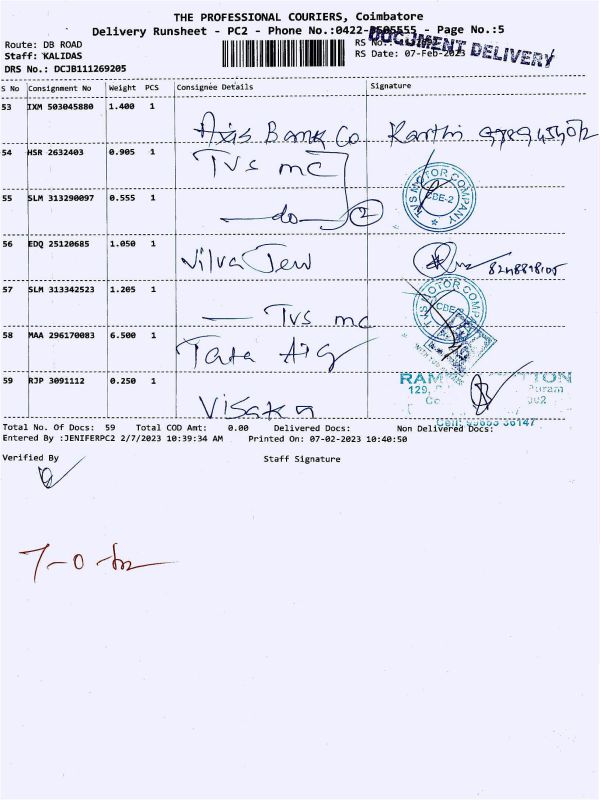 THE PROFESSIONAL COURIERS, Coimbatore
Delivery Runsheet - PC2 - Phone No.:0422- - Page No.:5
DOCUMENT DELIVERY
Route: DB ROAD
RS No.:
Staff: KALIDAS
RS Date: 07-Feb-2023
DRS No.: DCJB111269205
S No Consignment No Weight PCS Consignee Details Signature
53 IXM 503045880 1.400 1
Axis Bank Co Kanthi
54 HSR 2632403 0.905 1
TVS mc
TVS MOTOR COMPANY
CDE-2
55 SLM 313290097 0.555 1
do 2
56 EDQ 25120685 1.050 1
Nilva Jew
57 SLM 313342523 1.205 1
TVS MOTOR COMP
CDE
TVS mc
58 MAA 296170083 6.500 1
Tata AIG
59 RJP 3091112 0.250 1
RAM TTON
129, Puram
Co
Visaka
Cell: 95665 36147
Total No. Of Docs: 59 Total COD Amt: 0.00 Delivered Docs: Non Delivered Docs:
Entered By :JENIFERPC2 2/7/2023 10:39:34 AM Printed On: 07-02-2023 10:40:50
Verified By Staff Signature